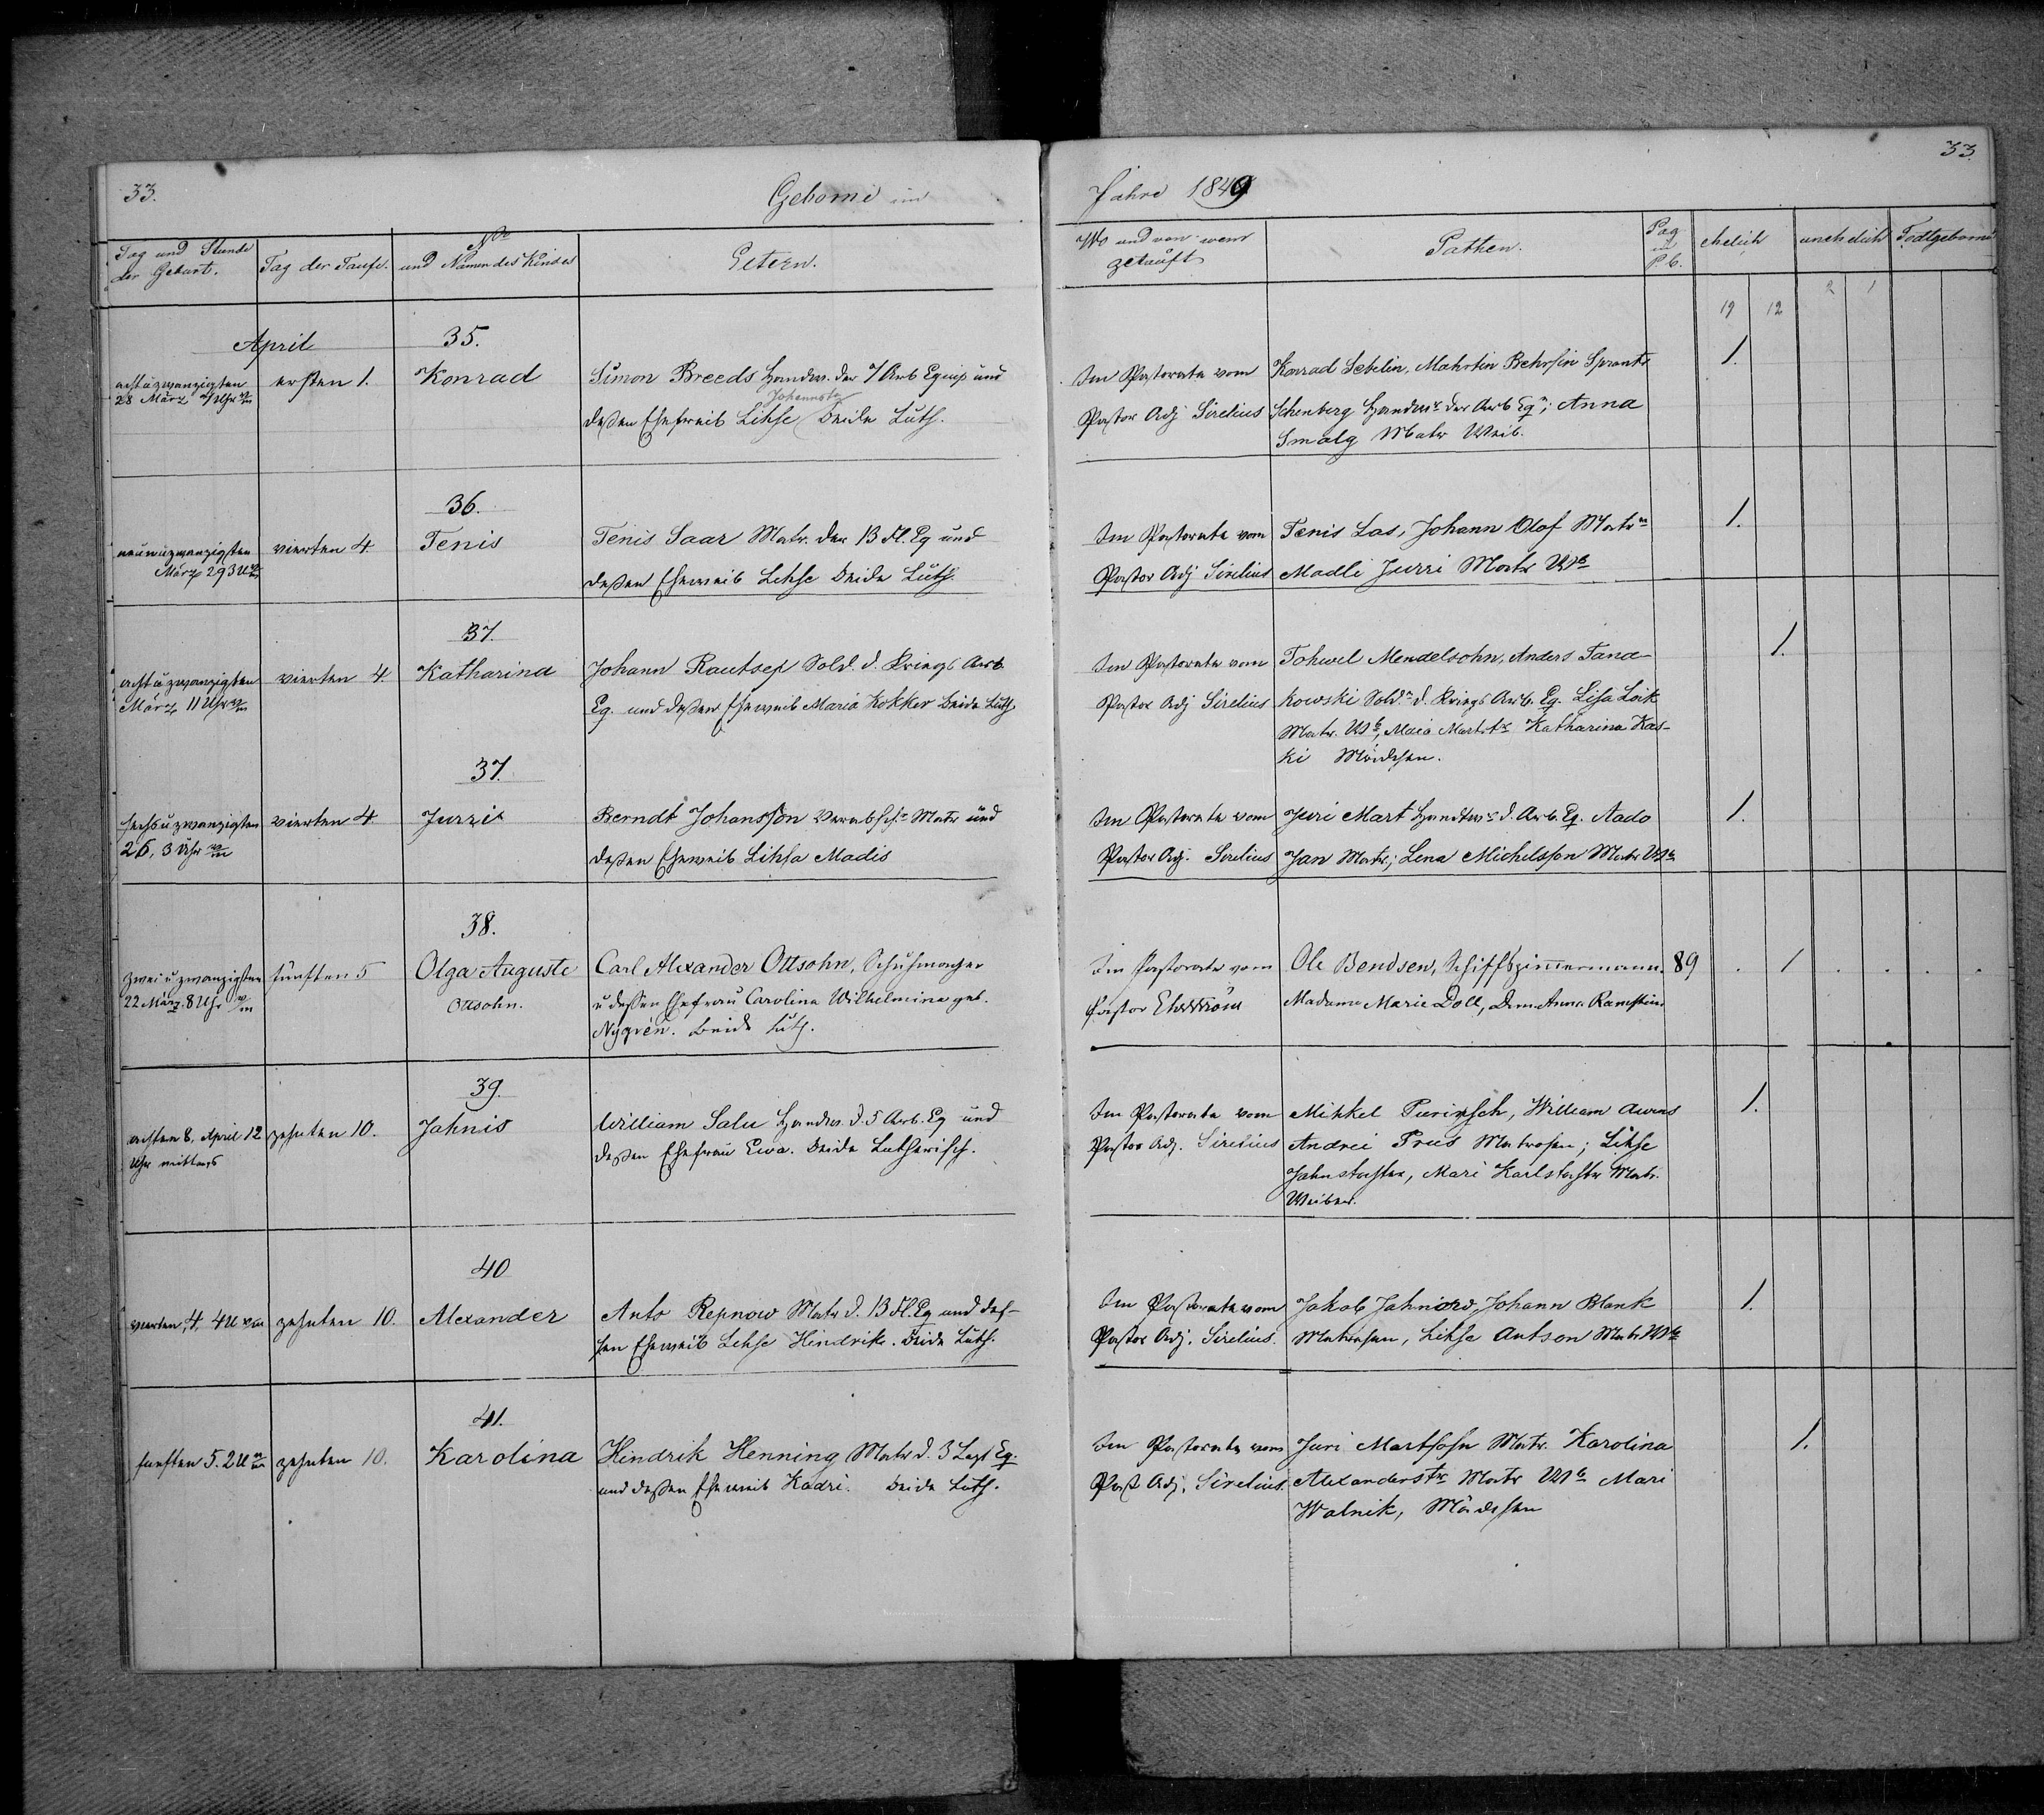 33.
Geborne im
Jahre 1849
33.
Tag und Stunde der Geburt.
Tag der Taufe.
No und Namen des Kindes
Eltern.
Wo und von wem getauft
Pathen.
Pag
P. b.
ehelich
unehelich
Todtgeborne
19 12 2 1
April
35.
acht u zwanzigsten
28 März 7 Uhr
ersten 1.
Konrad
Simon Breeds Handw. der 7 Arb Equip und
Johannstr
deßen Eheweib Lihse beide Luth.
Im Pastorate vom
Pastor Adj Sirelius
Konrad Sebelin, Mahrtin Behrsin
Schenberg Handwr der Arb Eq; Anna
Smalg Matr Weib.
1.
36.
neunuzwanzigsten
März 29 3 U
vierten 4
Tenis
Tenis Saar Matr. der 13 Fl. Eq und
deßen Eheweib Lehse beide Luth.
Im Pastorate vom
Pastor Adj Sirelius
Tenis Las, Johann Olof Matrn
Madli Jurri Matr Wb
1.
37.
acht u zwanzigsten
März 11 Uhr
vierten 4.
Katharina
Johann Rautsep Sold. d. Kriegs Arb.
Eq. und deßen Eheweib Maria Kokker beide Luth.
Im Pastorate vom
Pastor Adj Sirelius
Tohwel Mendelsohn, Anders Tana-
kowski Soldn d. Kriegs Arb. Eq. Lisa Loik
Matr. Wb, Maia Martstr Katharina Kas-
ki Mädchen.
1.
37.
sechs u zwanzigsten
26, 3 Uhr
vierten 4
Jurri
Berndt Johansson verabsch. Matr und
deßen Eheweib Lihsa Madis
Im Pastorate vom
Pastor Adj. Sirelius
Juri Mart Handwr d. Arb. Eq. Aado
Jan Matr; Lena Michelsson Matr Wb
1.
38.
zwei u zwanzigsten
22 März. 8 Uhr
fünften 5
Olga Auguste
Ottsohn.
Carl Alexander Ottsohn, Schuhmacher
u deßen Ehefrau Carolina Wilhelmina geb.
Nygrén. beide Luth.
Im Pastorate vom
Pastor Ehrström
Ole Bendsen, Schiffszimmermann.
Madame Marie Doll, Dem. Anna Ramstein
89
1
39.
achten 8, April 12
Uhr mittags
zehnten 10.
Jahnis
William Salu Handw. d. 5 Arb. Eq und
deßen Ehefrau Ewa. beide Lutherisch.
Im Pastorate vom
Pastor Adj. Sirelius
Mikkel, William
Andrei Prus Matrosen; Lihse
Jahnstochter, Mari Karlstochtr Matr.
Weiber.
1.
40
vierten, 4, 4 U
zehnten 10.
Alexander
Ants Repnow Matr d. 13 Fl. Eq und des-
sen Eheweib Lehse Hindrik. beide Luth.
Im Pastorate vom
Pastor Adj. Sirelius.
Jakob, Johann Blank
Matrosen, Lihse Antson Matr Wb
1.
41.
fünften 5. 2 U
zehnten 10.
Karolina
Hindrik Henning Matr d. 3 Eq.
und deßen Eheweib Kadri. beide Luth.
Im Pastorate vom
Past Adj. Sirelius
Juri Martsohn Matr. Karolina
Alexanderstr Matr Wb Mari
Walnik, Mädchen
1.